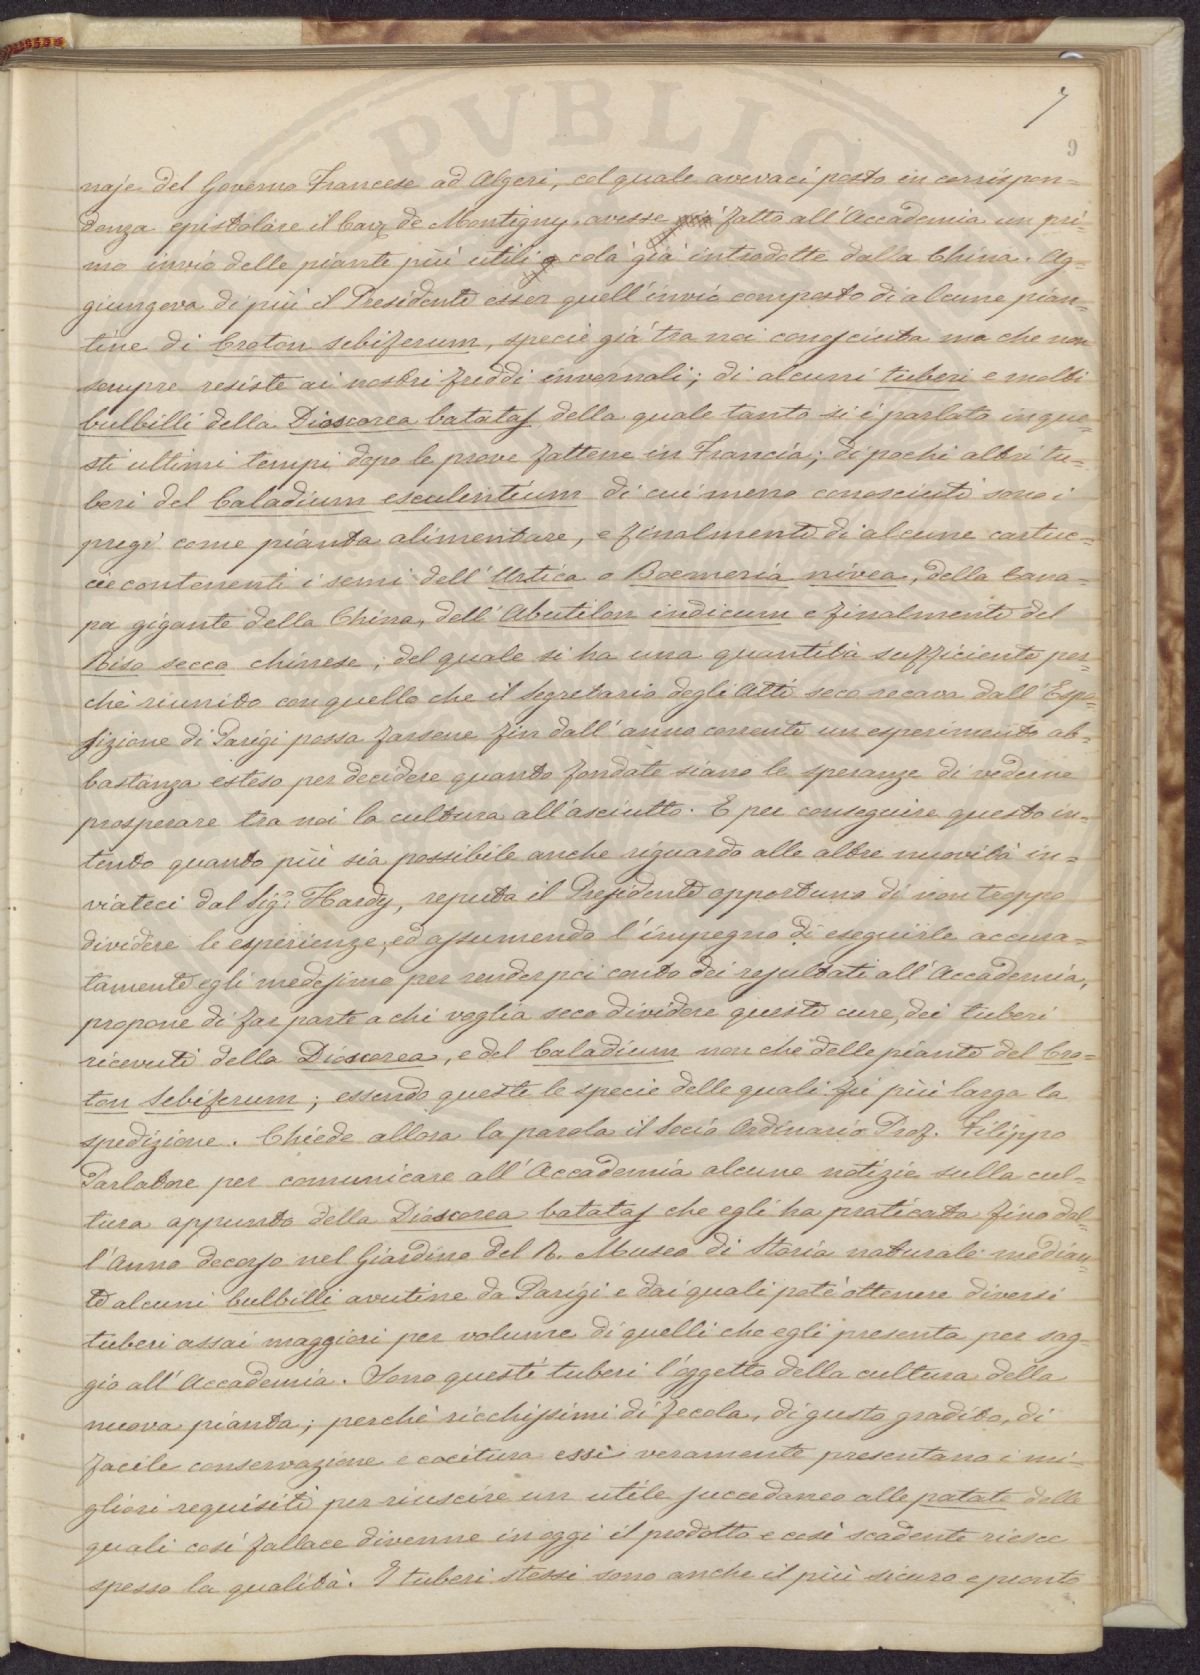 7
9
naje del Governo Francese ad Algeri, col quale avevaci posto in corrispon=
denza epistolare il Cav. de Montigny, avesse fatto all'Accademia un pri=
mo invio delle piante più utili colà già introdotte dalla China. Ag=
giungeva di più il Presidente esser quell'invio composto di alcune pian=
tine di Croton sebiferum, specie già tra noi conosciuta ma che non
sempre resiste ai nostri freddi invernali; di alcuni tuberi e molti
bulbilli della Dioscorea batatas della quale tanto si è parlato in que=
sti ultimi tempi dopo le prove fattene in Francia; di pochi altri tu=
beri del Caladium esculentium di cui meno conosciuti sono i
pregi come pianta alimentare, e finalmente di alcune cartuc=
cie contenenti i semi dell'Urtica o Boemeria nivea, della Cana=
pa gigante della China, dell'Abutilon indicum e finalmente del
Riso secco chinese; del quale si ha una quantità sufficiente per=
chè riunito con quello che il Segretario degli Atti seco recava dall'Espo=
sizione di Parigi possa farsene fin dall'anno corrente un esperimento ab=
bastanza esteso per decidere quanto fondate siano le speranze di vederne
prosperare tra noi la cultura all'asciutto. E per conseguire questo in=
tento quanto più sia possibile anche riguardo alle altre nuovità in=
viateci dal Sigr. Hardy, reputa il Presidente opportuno di non troppo
dividere le esperienze, ed assumendo l'impegno di eseguirle accura=
tamente egli medesimo per render poi conto dei resultati all'Accademia,
propone di far parte a chi voglia seco dividere queste cure, dei tuberi
ricevuti della Dioscorea, e del Caladium non che delle piante del Cro=
ton Sebiferum; essendo queste le specie delle quali fu più larga la
spedizione. Chiede allora la parola il Socio Ordinario Prof. Filippo
Parlatore per comunicare all'Accademia alcune notizie sulla cul=
tura appunto della Dioscorea batatas che egli ha praticata fino dal=
l'Anno decorso nel Giardino del R. Museo di Storia naturale median=
te alcuni bulbilli avutine da Parigi e dai quali potè ottenere diversi
tuberi assai maggiori per volume di quelli che egli presenta per sag=
gio all'Accademia. Sono questi tuberi l'oggetto della cultura della
nuova pianta; perchè ricchissimi di fecola, di gusto gradito, di
facile conservazione e cocitura essi veramente presentano i mi=
gliori requisiti per riuscire un utile succedaneo alle patate delle
quali così fallace divenne in oggi il prodotto e così scadente riesce
spesso la qualità. I tuberi stessi sono anche il più sicuro e pronto